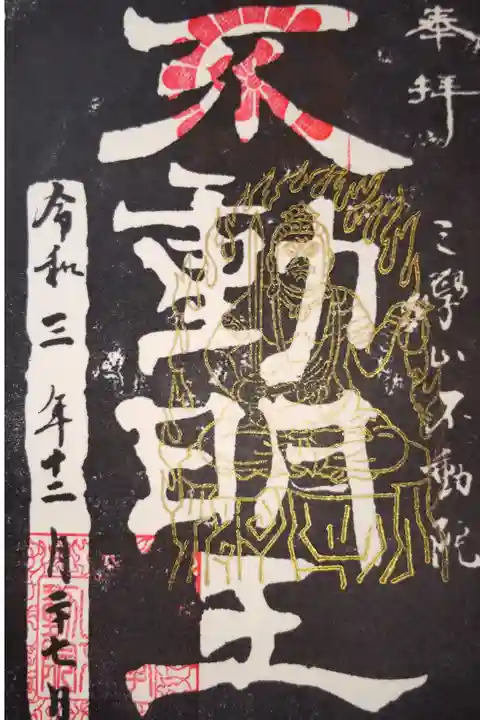 奉拝
三學山不動院
不動明王
令和三年十二月二十七日